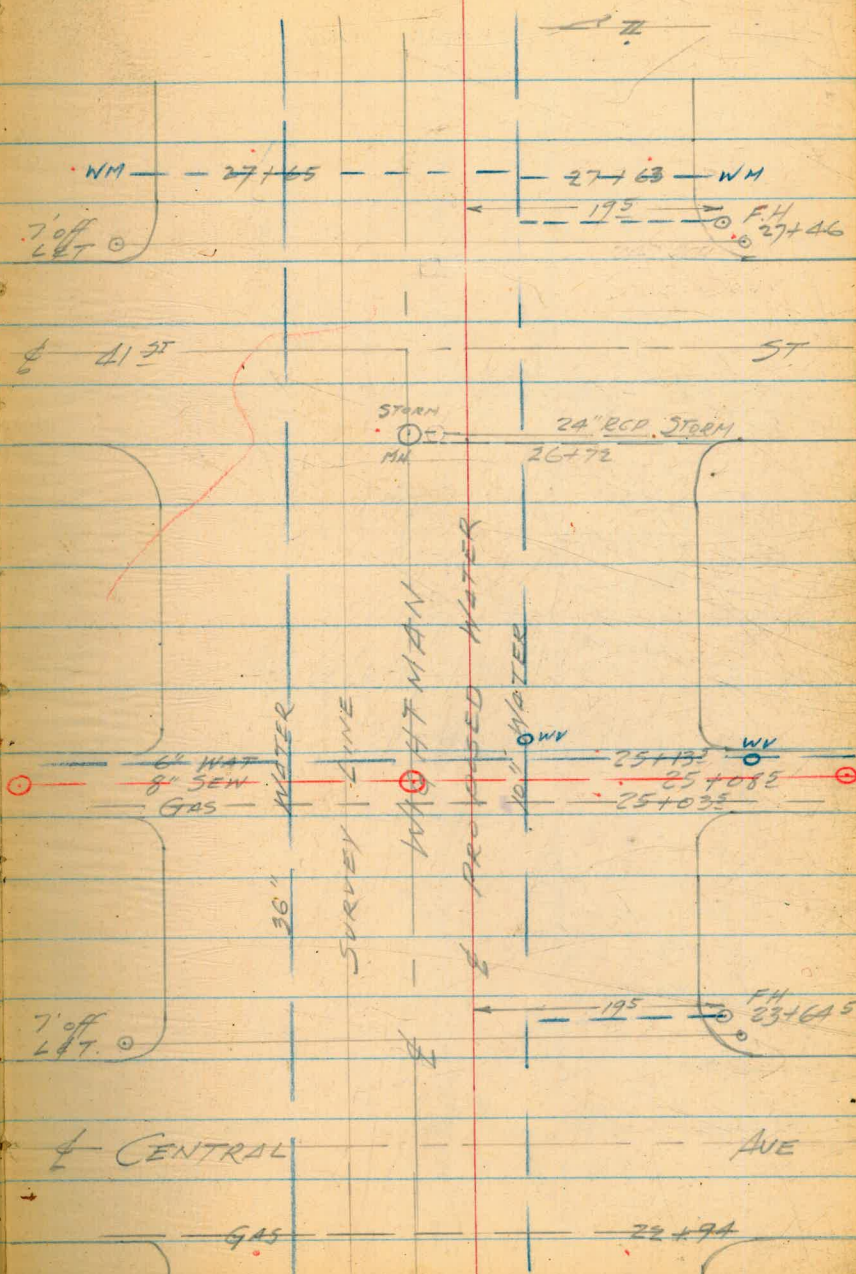 N
WM 27+65 27+63 WM
19⁵
F.H
27+46
7' off
L&T
℄ 41 ST ST
STORM
MH
24" RCP STORM
26+72
36" WATER
SURVEY LINE
℄ WIGHTMAN
℄ PROPOSED WATER
10" WATER
WV
WV
6" WAT 25+13⁵
8" SEW 25+08⁵
GAS 25+03⁵
19⁵
F.H
23+64⁵
7' off
L&T.
℄ CENTRAL AVE
GAS 22+94